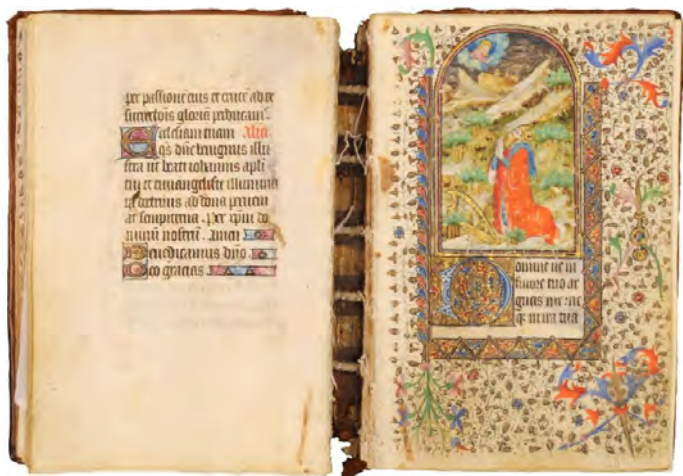 per passione eius et crucē ad re
surrectōis gloriā perducam̄.
Ecclesiam tuam Alia
q̄s dn̄e benignus illu
stra ut beati iohannis apli
tui et euuangeliste illumina
ta doctrinis ad dona perueni
at sempiterna. Per xp̄m do
minum nostrū. Amen
Benedicamus dn̄o
Deo gracias
Domine ne in
furore tuo ar
guas me: ne
q̄ in ira tua